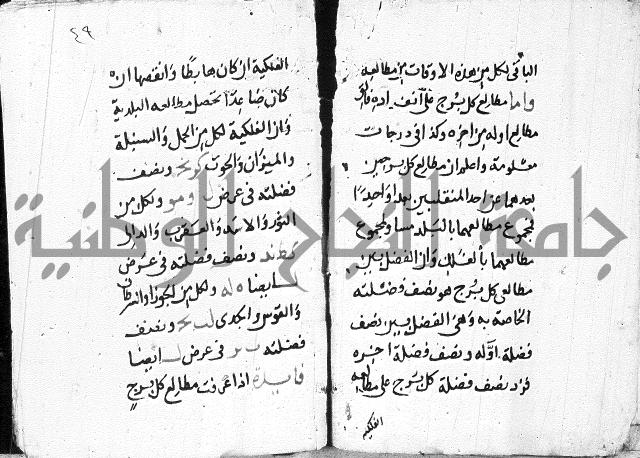 الباقي لكل من هذه الاوقات من مطالعه
واما مطالع كل برج على آنفراده فانق
مطالع اوله من اخره وكذا في درجات
معلومة واعلم ان مطالع كل برجين
بعدهما عن احد المنقلبين بعدا واحدا
مجموع مطالعهما بالبلد مساو لمجموع
مطالعهما بالفلك وان الفضل بين
مطالع كل برج هو نصف فضلته
الخاصة به وهي الفضل بين نصف
فضلة اوله ونصف فضلة اخره
فزد نصف فضلة كل برج على مطالعه
الفلكيه
٤٩
الفلكية ان كان هابطا وانقصها ان
كان صاعدا تحصل مطالعه البلدية
وان الفلكية لكل من الحمل والسنبلة
والميزان والحوت ونصف
فضلته في عرض ولكل من
الثور والاسد والعقرب والدلو
ونصف فضلته في عرض
ايضا ولكل من الجوزا والسرطان
والقوس والجدى ونصف
فضلته في عرض ايضا
فايدة اذا عرفت مطالع كل برج
جامعة النجاح الوطنية